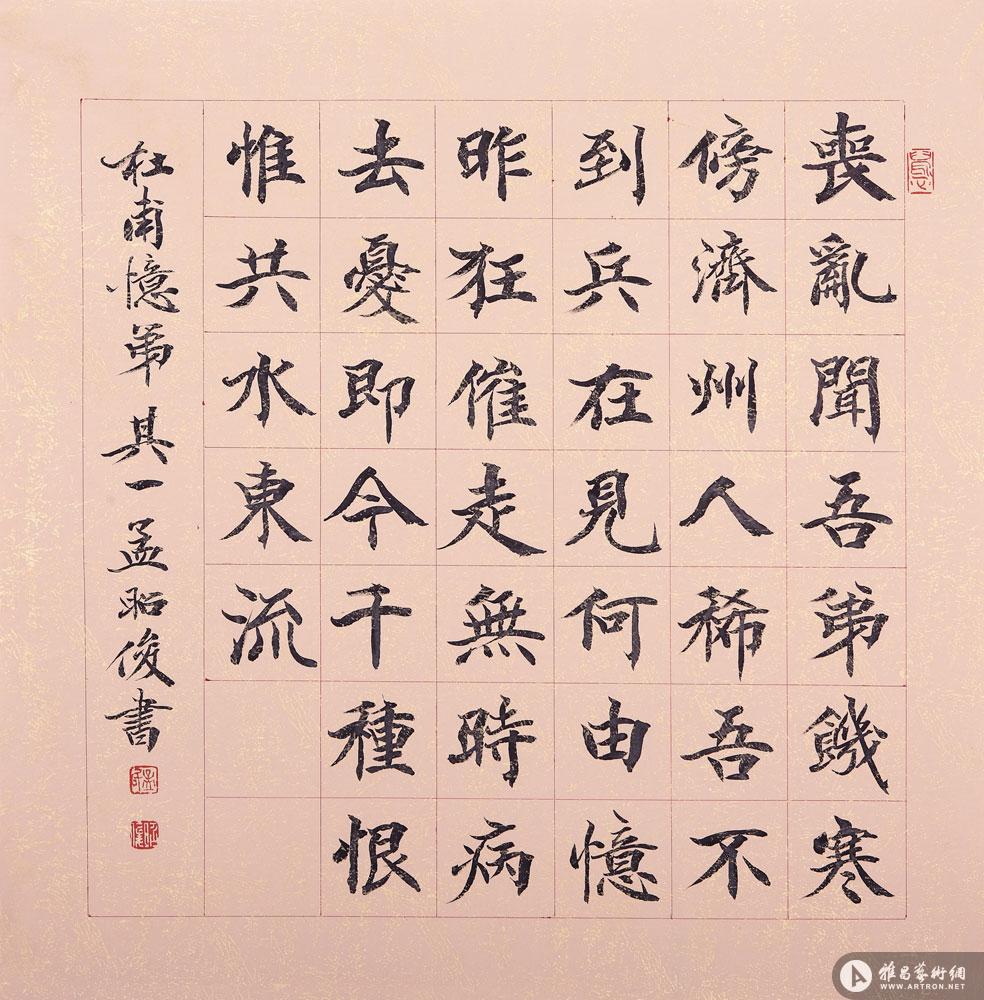 喪亂聞吾弟饑寒
傍濟州人稀吾不
到兵在見何由憶
昨狂催走無時病
去憂即今千種恨
惟共水東流
杜甫憶弟其一孟昭俊書
雅昌藝術網
WWW.ARTRON.NET